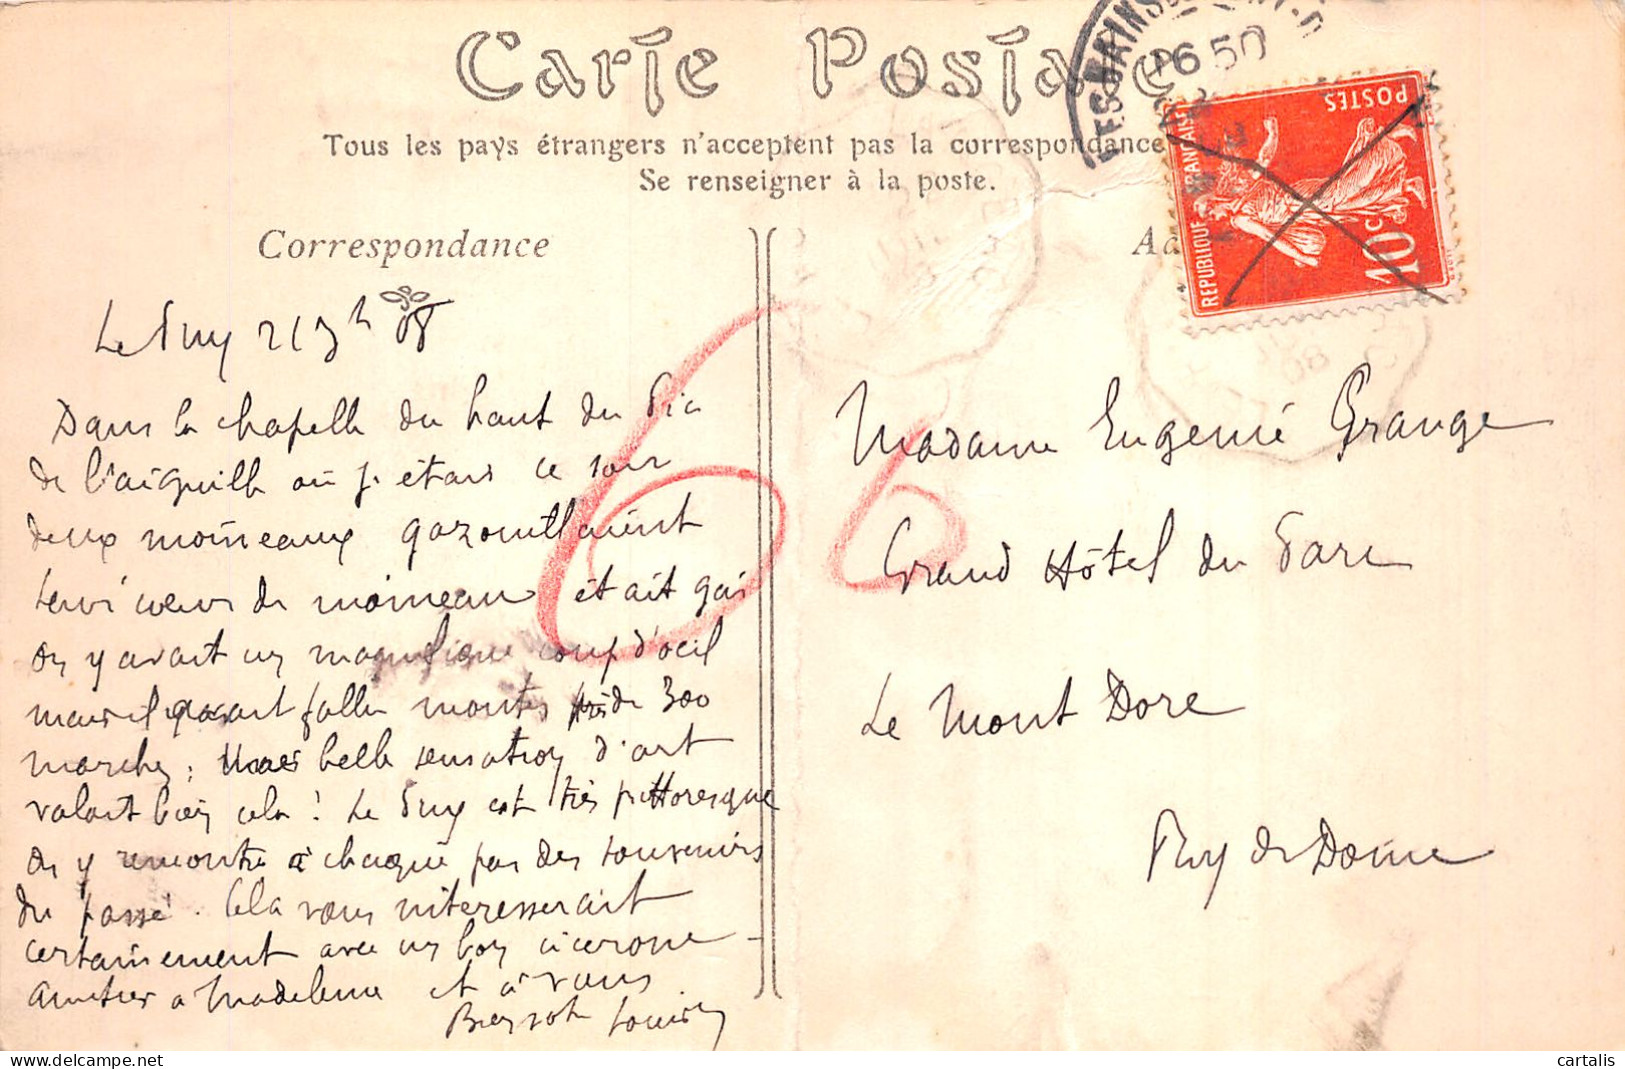 Carte Postale
Tous les pays étrangers n'acceptent pas la correspondance
Se renseigner à la poste.
Correspondance
Le Puy 21 08
Dans la chapelle du haut du Pic
de l'aiguille où j'étais ce soir
deux moineaux gazouillaient
leurs cœurs de moineau était gai
On y avait un magnifique coup d'oeil
mais il avait fallu monter près de 300
marches; Mais belle sensation d'art
valait bien cela! Le Puy est très pittoresque
On y remonte à chaque pas des souvenirs
du passé. Cela vous intéresserait
certainement avec un bon cicerone
Amitiés a Madeleine et à vous
POSTES
REPUBLIQUE FRANCAISE
10c
6 50
08
Madame Eugenie Grange
Grand Hôtel du Parc
Le Mont Dore
Puy de Dome
cartalis